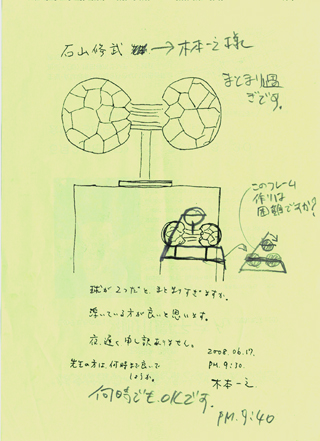 石山修武 → 木本一之様
まとまり過
ぎです。
このフレーム
作りは
困難ですか?
球が2つだと、まとまりすぎますか、
浮いている方が良いと思います。
夜、遅く申し訳ありません。
2008.06.17.
先生の方は、何時まで良いで
しょうか。
PM.9:30.
木本一之
何時でもOKです。
PM.9:40